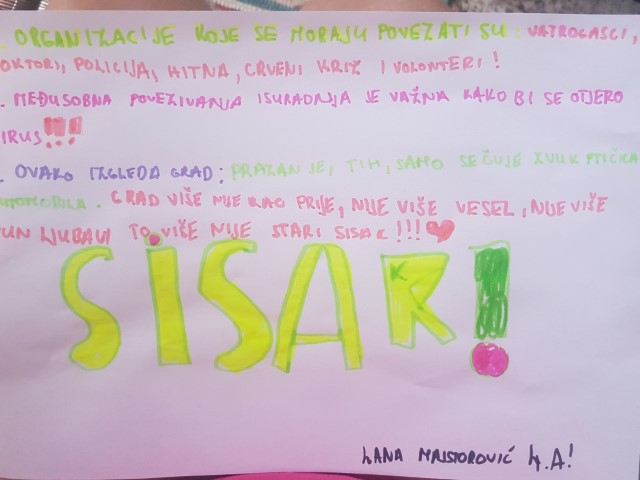 . ORGANIZACIJE KOJE SE MORAJU POVEZATI SU: VATROGASCI,
OKTORI, POLICIJA, HITNA, CRVENI KRIŽ I VOLONTERI!
. MEĐUSOBNA POVEZIVANJA ISURADNJA JE VAŽNA KAKO BI SE OTJERO
IRUS!!!
. OVAKO IZGLEDA GRAD: PRAZAN JE, TIH, SAMO SE ČUJE ZVUK PTIČKA
UTOMOBILA. GRAD VIŠE NIJE KAO PRIJE, NIJE VIŠE VESEL, NIJE VIŠE
UN LJUBAVI TO VIŠE NIJE STARI SISAK!!!
SISAK!
LANA MAJSTOROVIĆ 4.A!